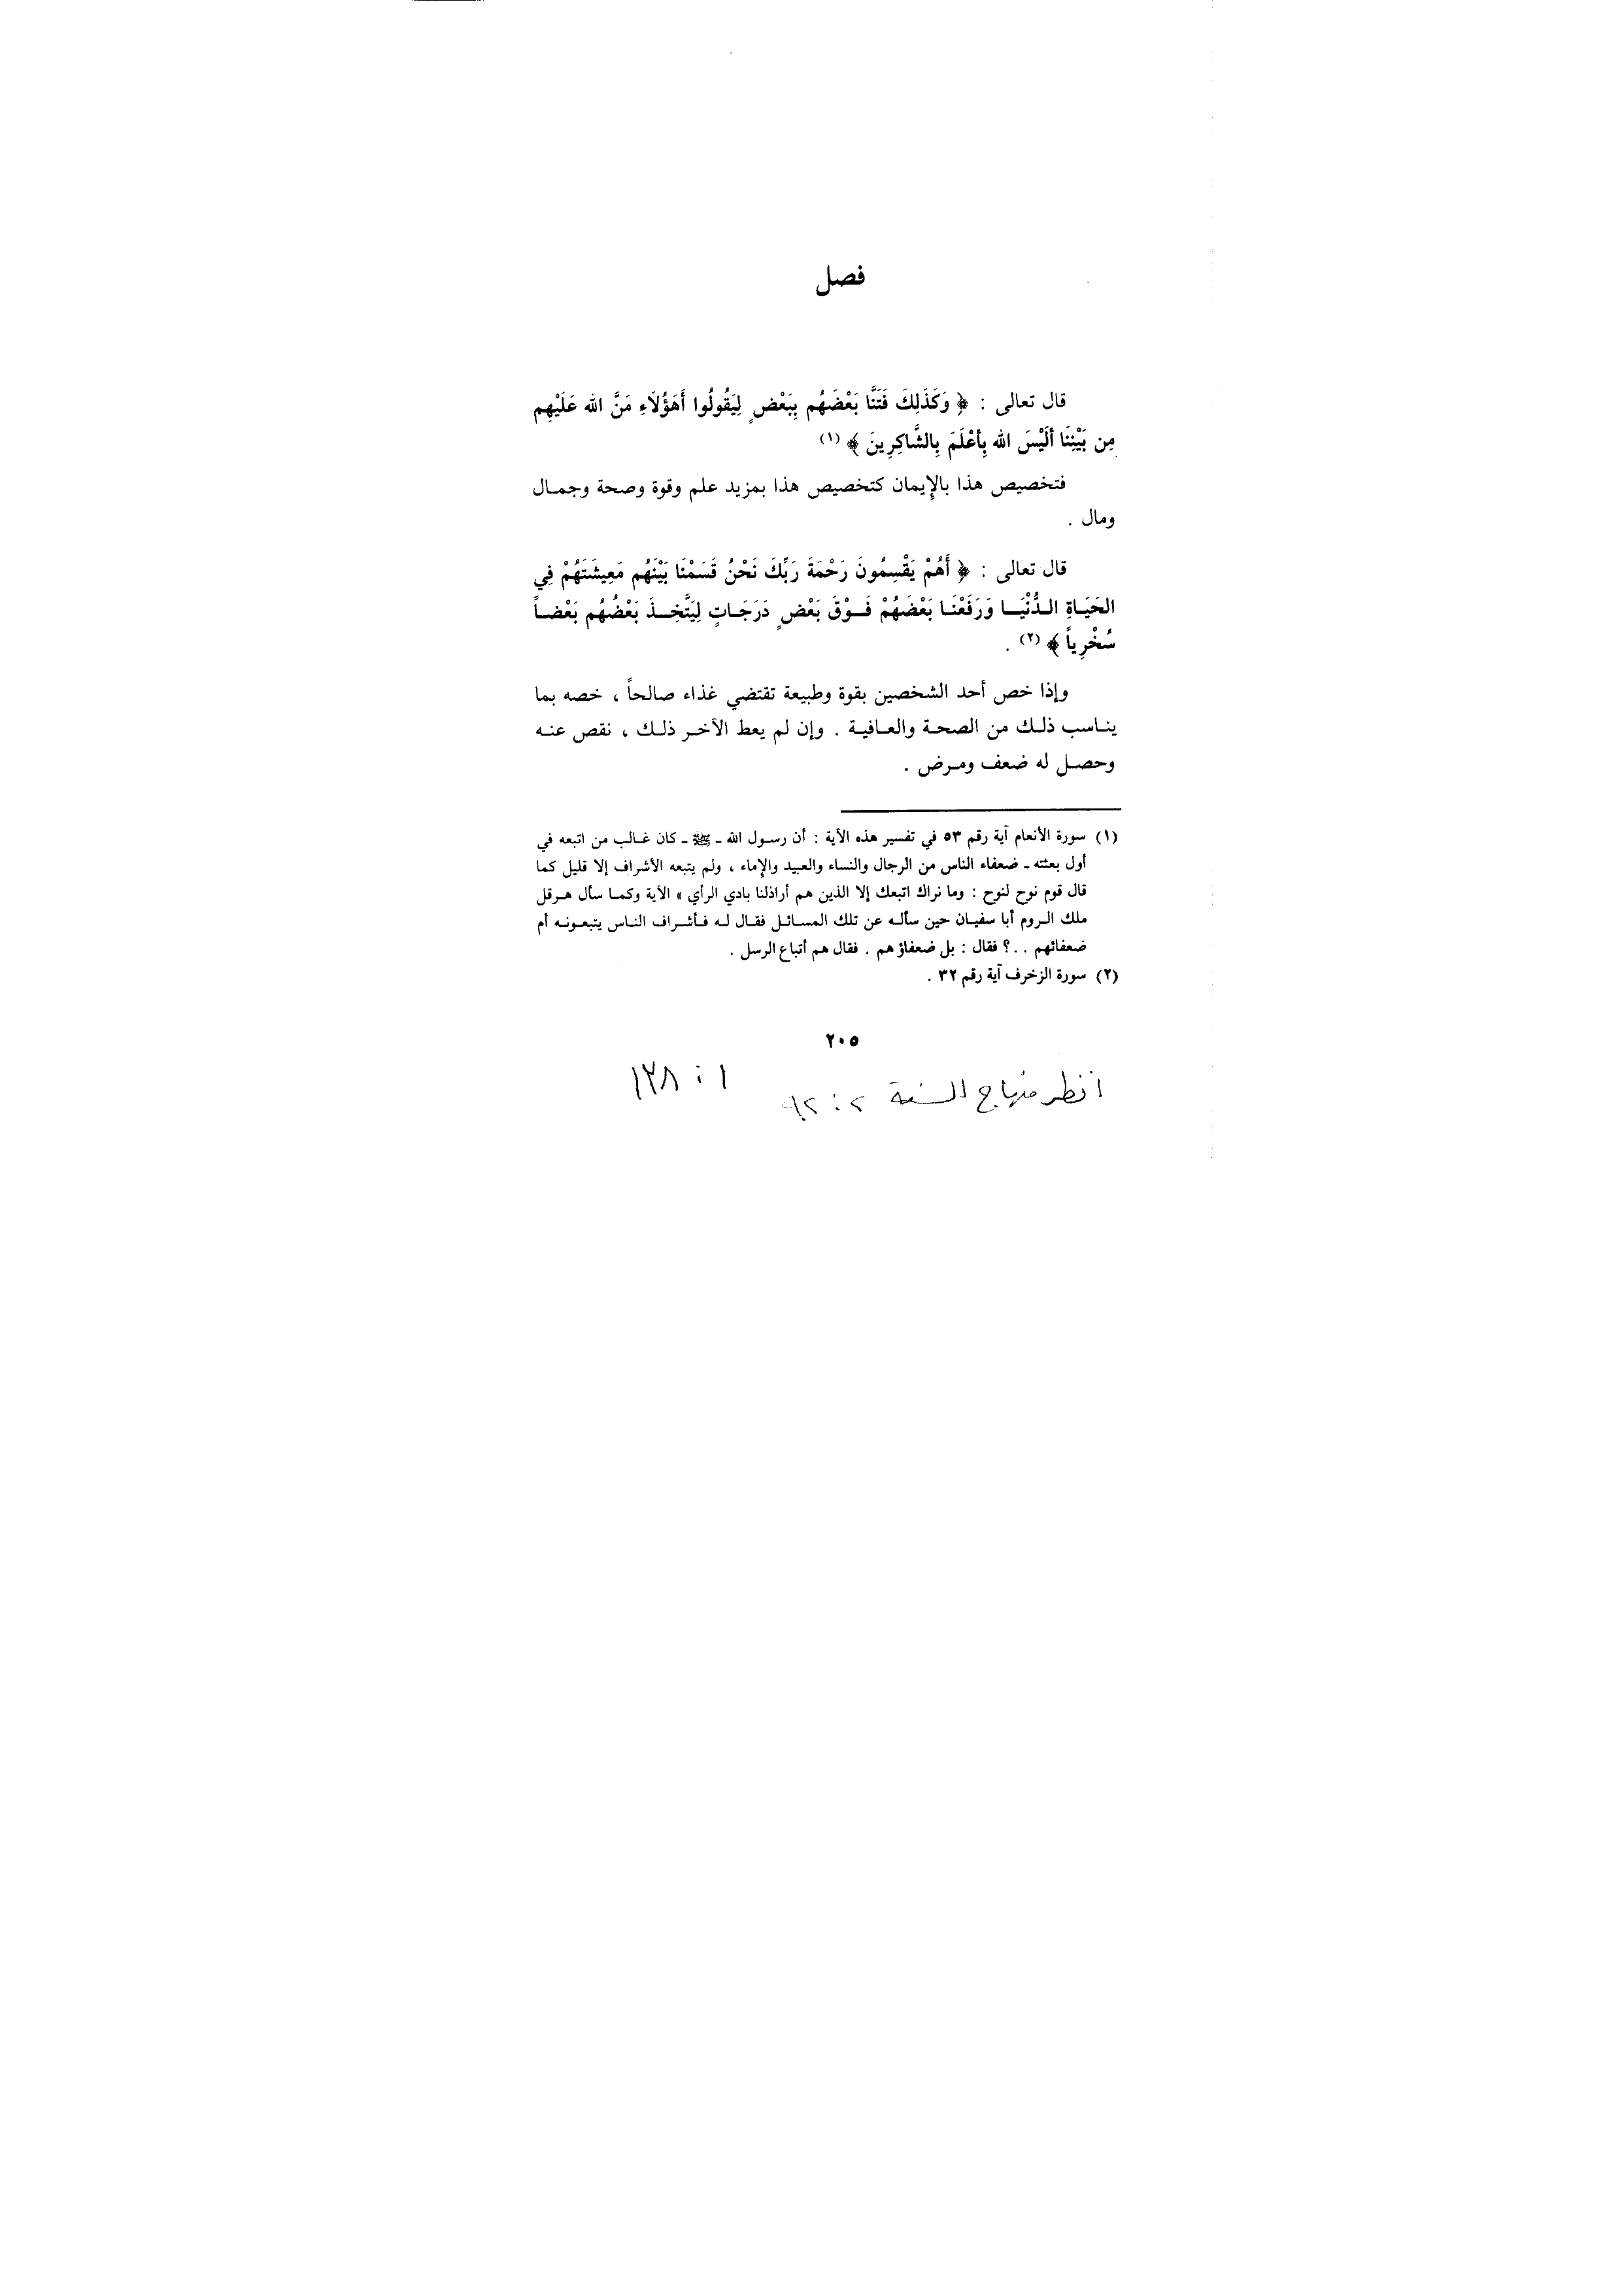 فصل
قال تعالى : ﴿ وَكَذَلِكَ فَتَنَّا بَعْضَهُم بِبَعْضٍ لِيَقُولُوا أَهَؤُلَاءِ مَنَّ الله عَلَيْهِم
مِن بَيْنِنَا ألَيْسَ الله بِأعْلَمَ بِالشَّاكِرِينَ ﴾ (١)
فتخصيص هذا بالإيمان كتخصيص هذا بمزيد علم وقوة وصحة وجمـال
ومال .
قال تعالى : ﴿ أَهُمْ يَقْسِمُونَ رَحْمَةَ رَبِّكَ نَحْنُ قَسَمْنَا بَيْنَهُم مَعِيشَتَهُمْ فِي
الحَيَـاةِ الـدُّنْيَـا وَرَفَعْنَـا بَعْضَهُمْ فَـوْقَ بَعْضٍ دَرَجَـاتٍ لِيَتَّخِـذَ بَعْضُهُم بَعْضـاً
سُخْرِياً ﴾ (٢) .
وإذا خص أحد الشخصين بقوة وطبيعة تقتضي غذاء صالحاً ، خصه بما
ينـاسب ذلـك من الصحـة والعـافيـة . وإن لم يعط الآخـر ذلـك ، نقص عنـه
وحصـل له ضعف ومـرض .
(١) سورة الأنعام آية رقم ٥٣ في تفسير هذه الآية : أن رسـول الله ـ ﷺ ـ كان غـالب من اتبعه في
أول بعثته ـ ضعفاء الناس من الرجال والنساء والعبيد والإماء ، ولم يتبعه الأشراف إلا قليل كما
قال قوم نوح لنوح : وما نراك اتبعك إلا الذين هم أراذلنا بادي الرأي » الآية وكمـا سأل هـرقل
ملك الـروم أبا سفيـان حين سألـه عن تلك المسـائـل فقـال لـه فـأشـراف النـاس يتبعـونـه أم
ضعفائهم . . ؟ فقال : بل ضعفاؤ هم . فقال هم أتباع الرسل .
(٢) سورة الزخرف آية رقم ٣٢ .
٢٠٥
انظر منهاج السنة ٢ : ١ : ١٢٨